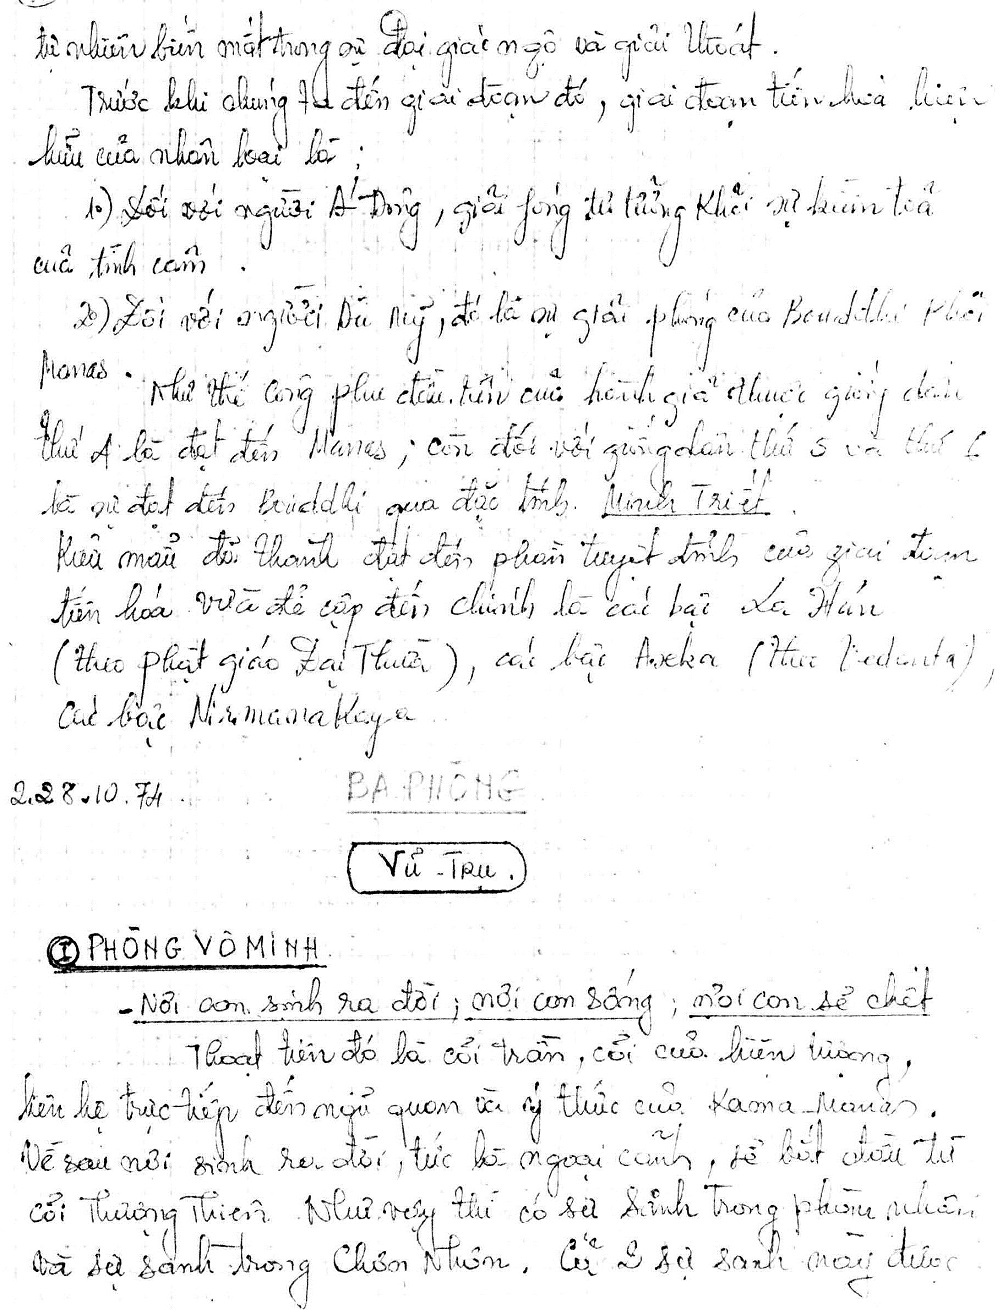 tự nhiên biến mất trong sự đại giác ngộ và giải thoát.
Trước khi chúng ta đến giai đoạn đó, giai đoạn tiến hóa hiện
hữu của nhân loại là :
1o) Đối với người Á Đông, giải phóng tư tưởng khỏi sự kiềm tỏa
của tình cảm.
2o) Đối với người Âu Mỹ, đó là sự giải phóng của Bouddhi khỏi
Manas.
Như thế công phu đầu tiên của hành giả thuộc giống dân
thứ 4 là đạt đến Manas; còn đối với giống dân thứ 5 và thứ 6
là sự đạt đến Bouddhi qua đặc tính Minh Triết.
Kiểu mẫu đã thành đạt đến phần tuyệt đỉnh của giai đoạn
tiến hóa vừa đề cập đến chính là các bậc La Hán
(theo phật giáo Đại Thừa), các bậc Aseka (theo Vedanta),
các bậc Nirmanakaya
2.28.10.74 BA PHÒNG
VŨ - TRỤ.
I PHÒNG VÔ MINH
- Nơi con sinh ra đời; nơi con sống; nơi con sẽ chết
Thoạt tiên đó là cõi trần, cõi của hiện tượng,
liên hệ trực tiếp đến ngũ quan và ý thức của Kama-Manas.
Về sau nơi sinh ra đời, tức là ngoại cảnh, sẽ bắt đầu từ
cõi Thượng Thiên. Như vậy thì có sự sanh trong phàm nhân
và sự sanh trong Chơn Nhơn. Cả 2 sự sanh này được